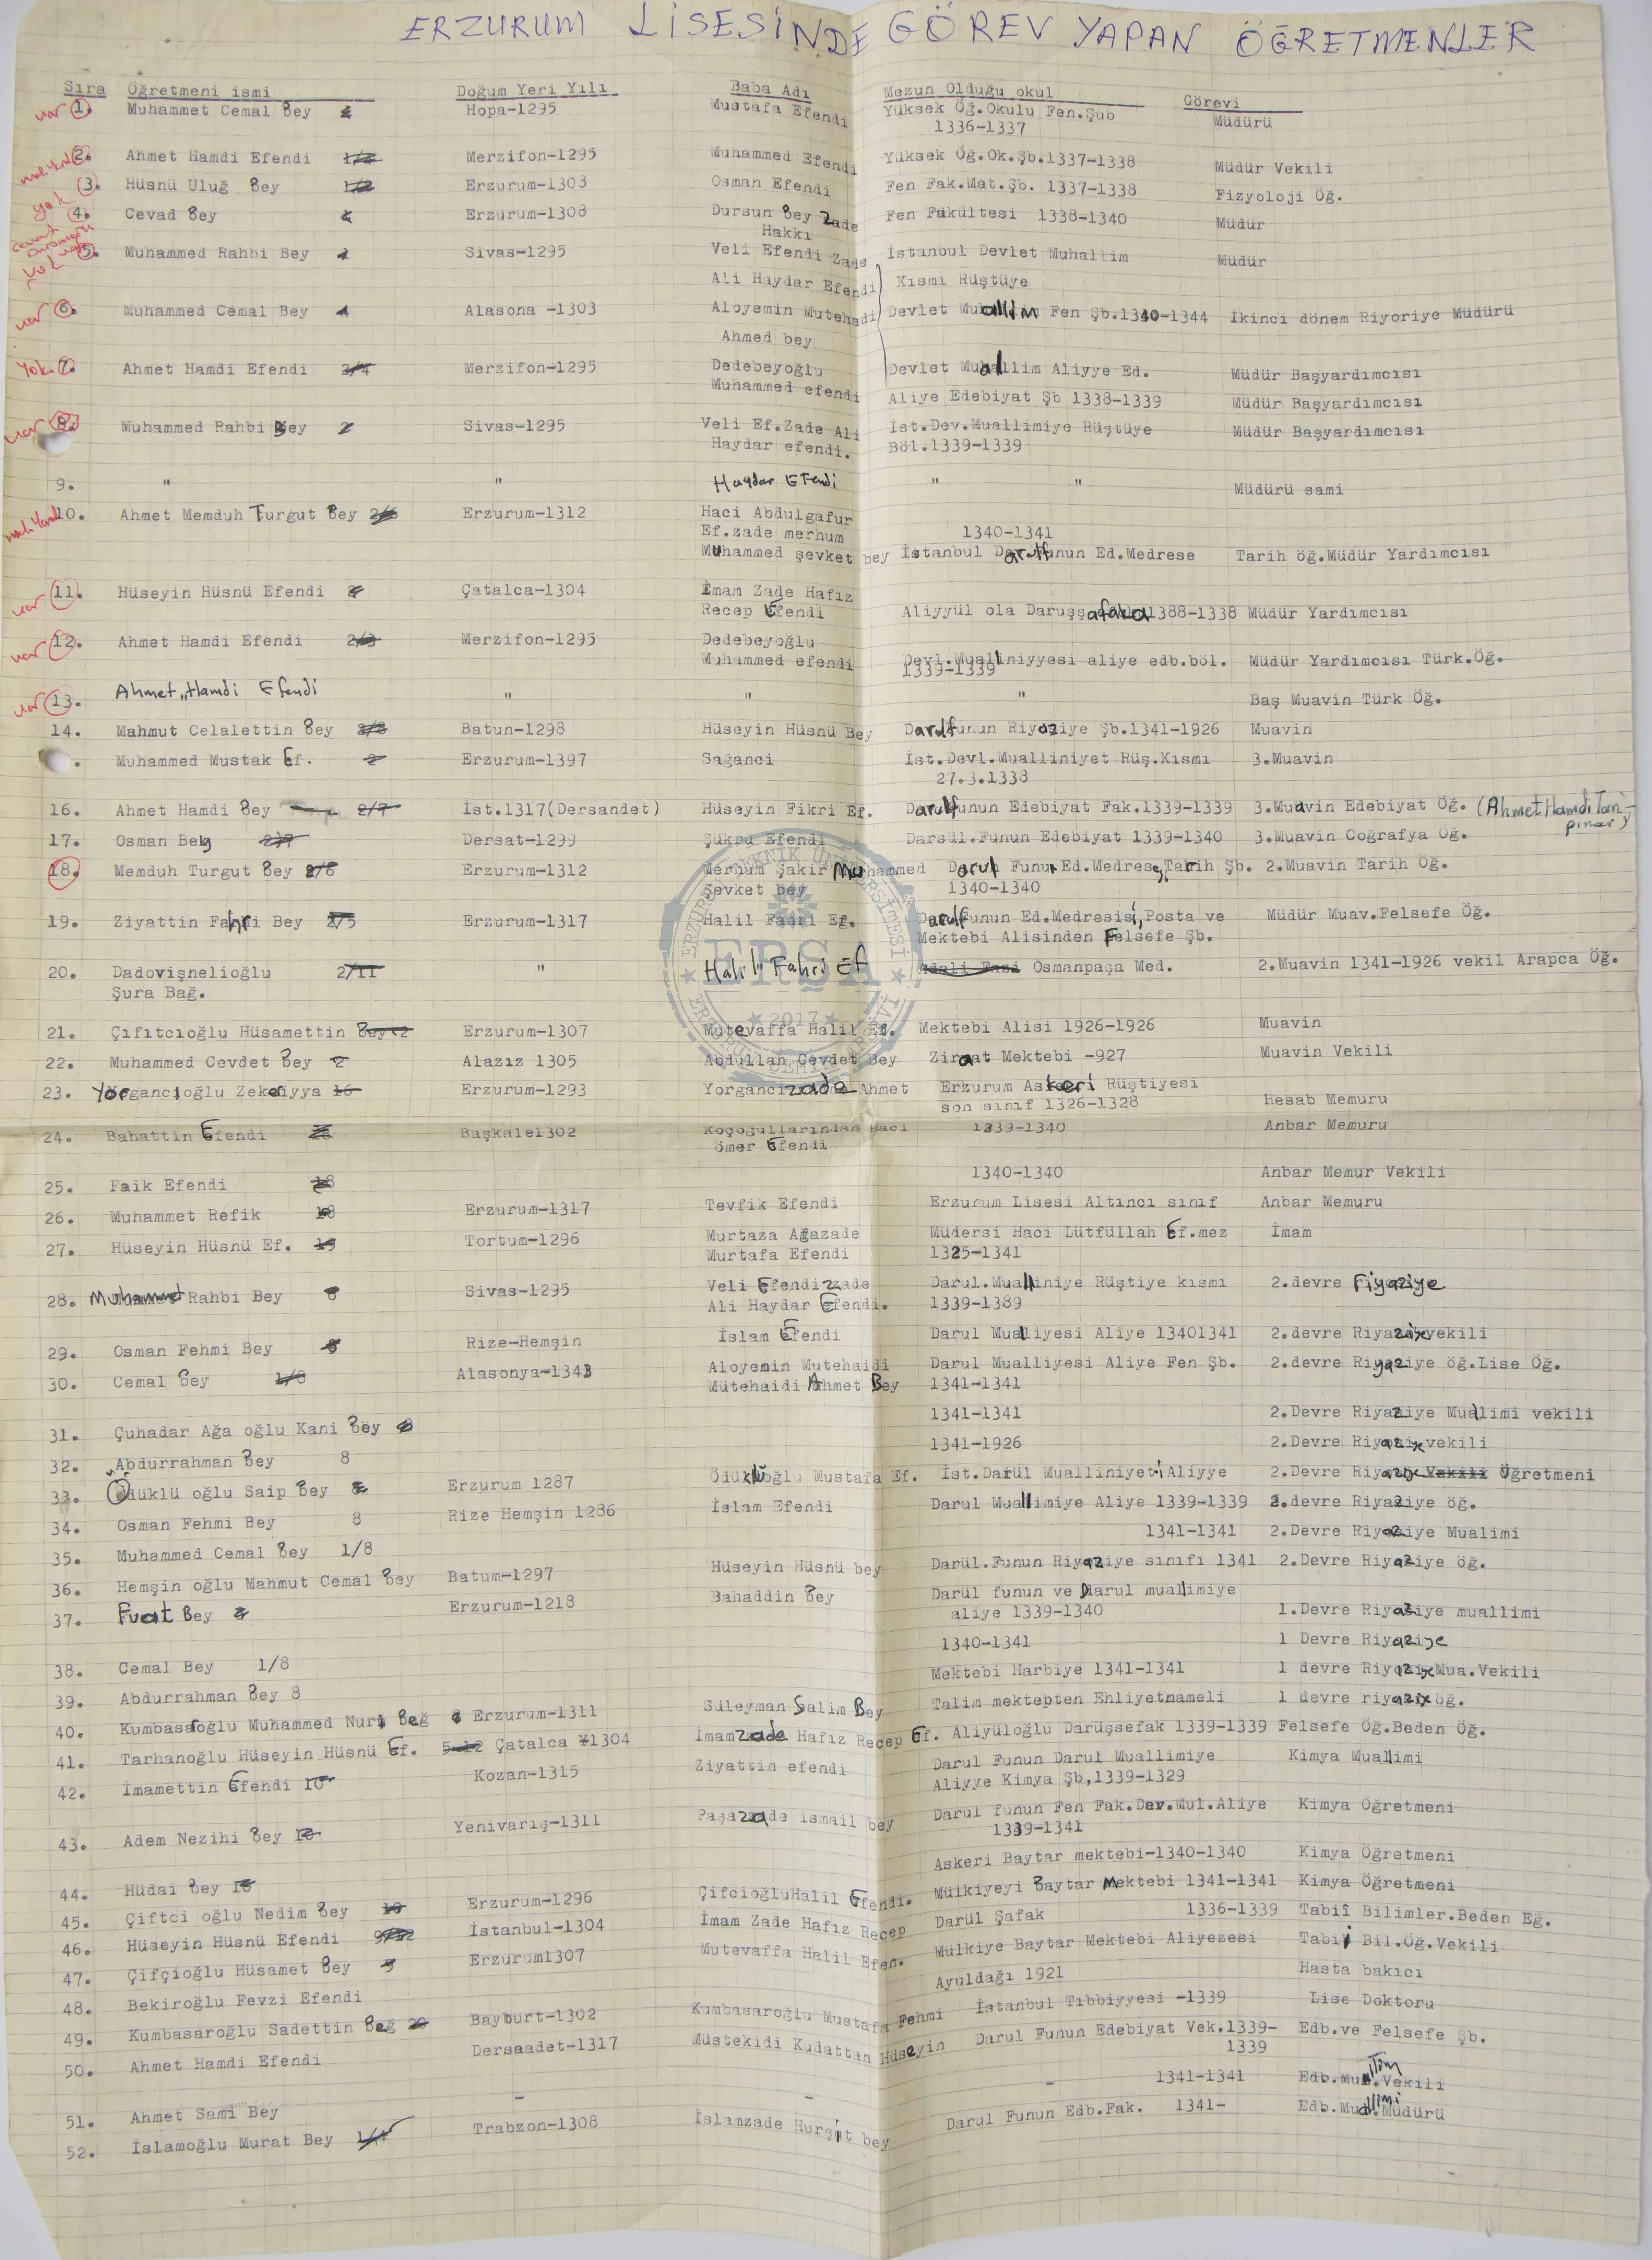 ERZURUM LİSESİNDE GÖREV YAPAN ÖĞRETMENLER
Sıra Öğretmeni ismi Doğum Yeri Yılı Baba Adı Mezun Olduğu okul Görevi
var 1. Muhammet Cemal Bey Hopa-1295 Mustafa Efendi Yüksek Öğ.Okulu Fen.Şub Müdürü
1336-1337
2. Ahmet Hamdi Efendi 1/2 Merzifon-1295 Muhammed Efendi Yüksek Öğ.Ok.Şb.1337-1338 Müdür Vekili
3. Hüsnü Uluğ Bey 1/2 Erzurum-1303 Osman Efendi Fen Fak.Mat.Şb. 1337-1338 Fizyoloji Öğ.
yok 4. Cevad Bey Erzurum-1308 Dursun Bey Zade Fen Fakültesi 1338-1340 Müdür
Hakkı
5. Muhammed Rahbi Bey 1 Sivas-1295 Veli Efendi Zade İstanbul Devlet Muhallim Müdür
Ali Haydar Efendi Kısmı Rüştüye
var 6. Muhammed Cemal Bey 1 Alasona -1303 Aloyemin Mutehadi Devlet Muallim Fen Şb.1340-1344 İkinci dönem Riyoriye Müdürü
Ahmed bey
Yok 7. Ahmet Hamdi Efendi 2/4 Merzifon-1295 Dedebeyoğlu Devlet Muallim Aliyye Ed. Müdür Başyardımcısı
Muhammed efendi Aliye Edebiyat Şb 1338-1339 Müdür Başyardımcısı
var 8. Muhammed Rahbi Bey 2 Sivas-1295 Veli Ef.Zade Ali İst.Dev.Muallimiye Rüştüye Müdür Başyardımcısı
Haydar efendi. Böl.1339-1339
9. " " Haydar Efendi " " Müdürü sami
10. Ahmet Memduh Turgut Bey 2/6 Erzurum-1312 Haci Abdulgafur
Ef.zade merhum 1340-1341
Muhammed şevket bey İstanbul Darulfunun Ed.Medrese Tarih öğ.Müdür Yardımcısı
var 11. Hüseyin Hüsnü Efendi 2 Çatalca-1304 İmam Zade Hafız
Recep Efendi Aliyyül ola Daruşşafaka 1388-1338 Müdür Yardımcısı
var 12. Ahmet Hamdi Efendi 2/3 Merzifon-1295 Dedebeyoğlu
Muhammed efendi Devl.Mualliniyyesi aliye edb.böl. Müdür Yardımcısı Türk.Öğ.
1339-1339
var 13. Ahmet Hamdi Efendi " " " " Baş Muavin Türk Öğ.
14. Mahmut Celalettin Bey 2/8 Batun-1298 Hüseyin Hüsnü Bey Darulfunun Riyaziye Şb.1341-1926 Muavin
. Muhammed Mustak Ef. 2 Erzurum-1397 Sağanci İst.Devl.Mualliniyet Rüş.Kısmı 3.Muavin
27.3.1338
16. Ahmet Hamdi Bey 2/7 İst.1317(Dersandet) Hüseyin Fikri Ef. Darulfunun Edebiyat Fak.1339-1339 3.Muavin Edebiyat Öğ. (Ahmet Hamdi Tan-
pınar)
17. Osman Bey 2/7 Dersat-1299 Şükrü Efendi Darsül.Funun Edebiyat 1339-1340 3.Muavin Coğrafya Öğ.
18. Memduh Turgut Bey 2/6 Erzurum-1312 Merhum Şakir Muhammed Darul Funun Ed.Medrese,Tarih Şb. 2.Muavin Tarih Öğ.
Şevket bey 1340-1340
19. Ziyattin Fahri Bey 2/5 Erzurum-1317 Halil Fahri Ef. Darulfunun Ed.Medresisi,Posta ve Müdür Muav.Felsefe Öğ.
Mektebi Alisinden Felsefe Şb.
20. Dadovişnelioğlu 2/11 " Halil Fahri Ef Osmanpaşa Med. 2.Muavin 1341-1926 vekil Arapca Öğ.
Şura Bağ.
21. Çıfıtcıoğlu Hüsamettin Bey 2 Erzurum-1307 Mutevaffa Halil Ef. Mektebi Alisi 1926-1926 Muavin
22. Muhammed Cevdet Bey 2 Alazız 1305 Abdullah Cevdet Bey Ziraat Mektebi -927 Muavin Vekili
23. Yorgancıoğlu Zekeriyya 16 Erzurum-1293 Yorgancizade Ahmet Erzurum Askeri Rüştiyesi
son sınıf 1326-1328 Hesab Memuru
24. Bahattin Efendi Başkale1302 Koçoğullarından Haci 1339-1340 Anbar Memuru
ömer Efendi
25. Faik Efendi 18 1340-1340 Anbar Memur Vekili
26. Muhammet Refik 18 Erzurum-1317 Tevfik Efendi Erzurum Lisesi Altıncı sınıf Anbar Memuru
27. Hüseyin Hüsnü Ef. 15 Tortum-1296 Murtaza Ağazade Müdersi Haci Lütfüllah Ef.mez İmam
Murtafa Efendi 1325-1341
28. Muhammet Rahbi Bey 8 Sivas-1295 Veli Efendi zade Darul.Mualliniye Rüştiye kısmı 2.devre riyaziye
Ali Haydar Efendi. 1339-1389
29. Osman Fehmi Bey 8 Rize-Hemşin İslam Efendi Darul Mualliyesi Aliye 13401341 2.devre Riyaziye vekili
30. Cemal Bey 1/8 Alasonya-1343 Aloyemin Mutehaidi Darul Mualliyesi Aliye Fen Şb. 2.devre Riyaziye öğ.Lise Öğ.
Mütehaidi Ahmet Bey 1341-1341
31. Çuhadar Ağa oğlu Kani Bey 8 1341-1341 2.Devre Riyaziye Mualimi vekili
32. Abdurrahman Bey 8 1341-1926 2.Devre Riyaziye vekili
33. Ödüklü oğlu Saip Bey 8 Erzurum 1287 Ödüklüoğlu Mustafa Ef. İst.Darül Mualliniyeti Aliyye 2.Devre Riyaziye Vekili Öğretmeni
34. Osman Fehmi Bey 8 Rize Hemşin 1286 İslam Efendi Darul Muallimiye Aliye 1339-1339 2.devre Riyaziye öğ.
35. Muhammed Cemal Bey 1/8 1341-1341 2.Devre Riyaziye Mualimi
36. Hemşin oğlu Mahmut Cemal Bey Batum-1297 Hüseyin Hüsnü bey Darül.Funun Riyaziye sınıfı 1341 2.Devre Riyaziye öğ.
37. Fuat Bey 8 Erzurum-1218 Bahaddin Bey Darül funun ve Darul mualimiye
aliye 1339-1340 1.Devre Riyaziye muallimi
38. Cemal Bey 1/8 1340-1341 1 Devre Riyaziye
39. Abdurrahman Bey 8 Mektebi Harbiye 1341-1341 1 devre Riyaziye Mua.Vekili
40. Kumbasaroğlu Muhammed Nuri Beğ 8 Erzurum-1311 Süleyman Salim Bey Talim mektepten Ehliyetnameli 1 devre riyaziye öğ.
41. Tarhanoğlu Hüseyin Hüsnü Ef. 5-12 Çatalca 1304 İmamzade Hafız Recep Ef. Aliyüloğlu Darüşsefak 1339-1339 Felsefe Öğ.Beden Öğ.
42. İmamettin Efendi 10 Kozan-1315 Ziyattin efendi Darul Funun Darul Muallimiye Kimya Muallimi
Aliyye Kimya Şb,1339-1329
43. Adem Nezihi Bey 10 Yenivarış-1311 Paşazade ismail bey Darul funun Fen Fak.Dar.Mul.Aliye Kimya Öğretmeni
1339-1341
44. Hüdai Bey 10 Askeri Baytar mektebi-1340-1340 Kimya Öğretmeni
45. Çiftci oğlu Nedim Bey 10 Erzurum-1296 ÇifcioğluHalil Efendi. Mülkiyeyi Baytar Mektebi 1341-1341 Kimya Öğretmeni
46. Hüseyin Hüsnü Efendi 9/12 İstanbul-1304 İmam Zade Hafız Recep Darül Şafak 1336-1339 Tabiî Bilimler.Beden Eğ.
47. Çifçioğlu Hüsamet Bey 9 Erzurum1307 Mutevaffa Halil Efen. Mülkiye Baytar Mektebi Aliyezesi Tabiî Bil.Öğ.Vekili
48. Bekiroğlu Fevzi Efendi Ayuldağı 1921 Hasta bakıcı
49. Kumbasaroğlu Sadettin Beğ 20 Bayburt-1302 Kumbasaroğlu Mustafa Fehmi İstanbul Tıbbiyyesi -1339 Lise Doktoru
50. Ahmet Hamdi Efendi Dersaadet-1317 Müstekidi Kudattan Hüseyin Darul Funun Edebiyat Vek.1339- Edb.ve Felsefe Şb.
1339
51. Ahmet Sami Bey - - - 1341-1341 Edb.Mua.Vekili
52. İslamoğlu Murat Bey 1/4 Trabzon-1308 İslamzade Hurşit bey Darul Funun Edb.Fak. 1341- Edb.Muallimi.Müdürü
ERZURUM TEKNİK ÜNİVERSİTESİ
ERŞA
2017
ERZURUM ŞEHİR ARŞİVİ